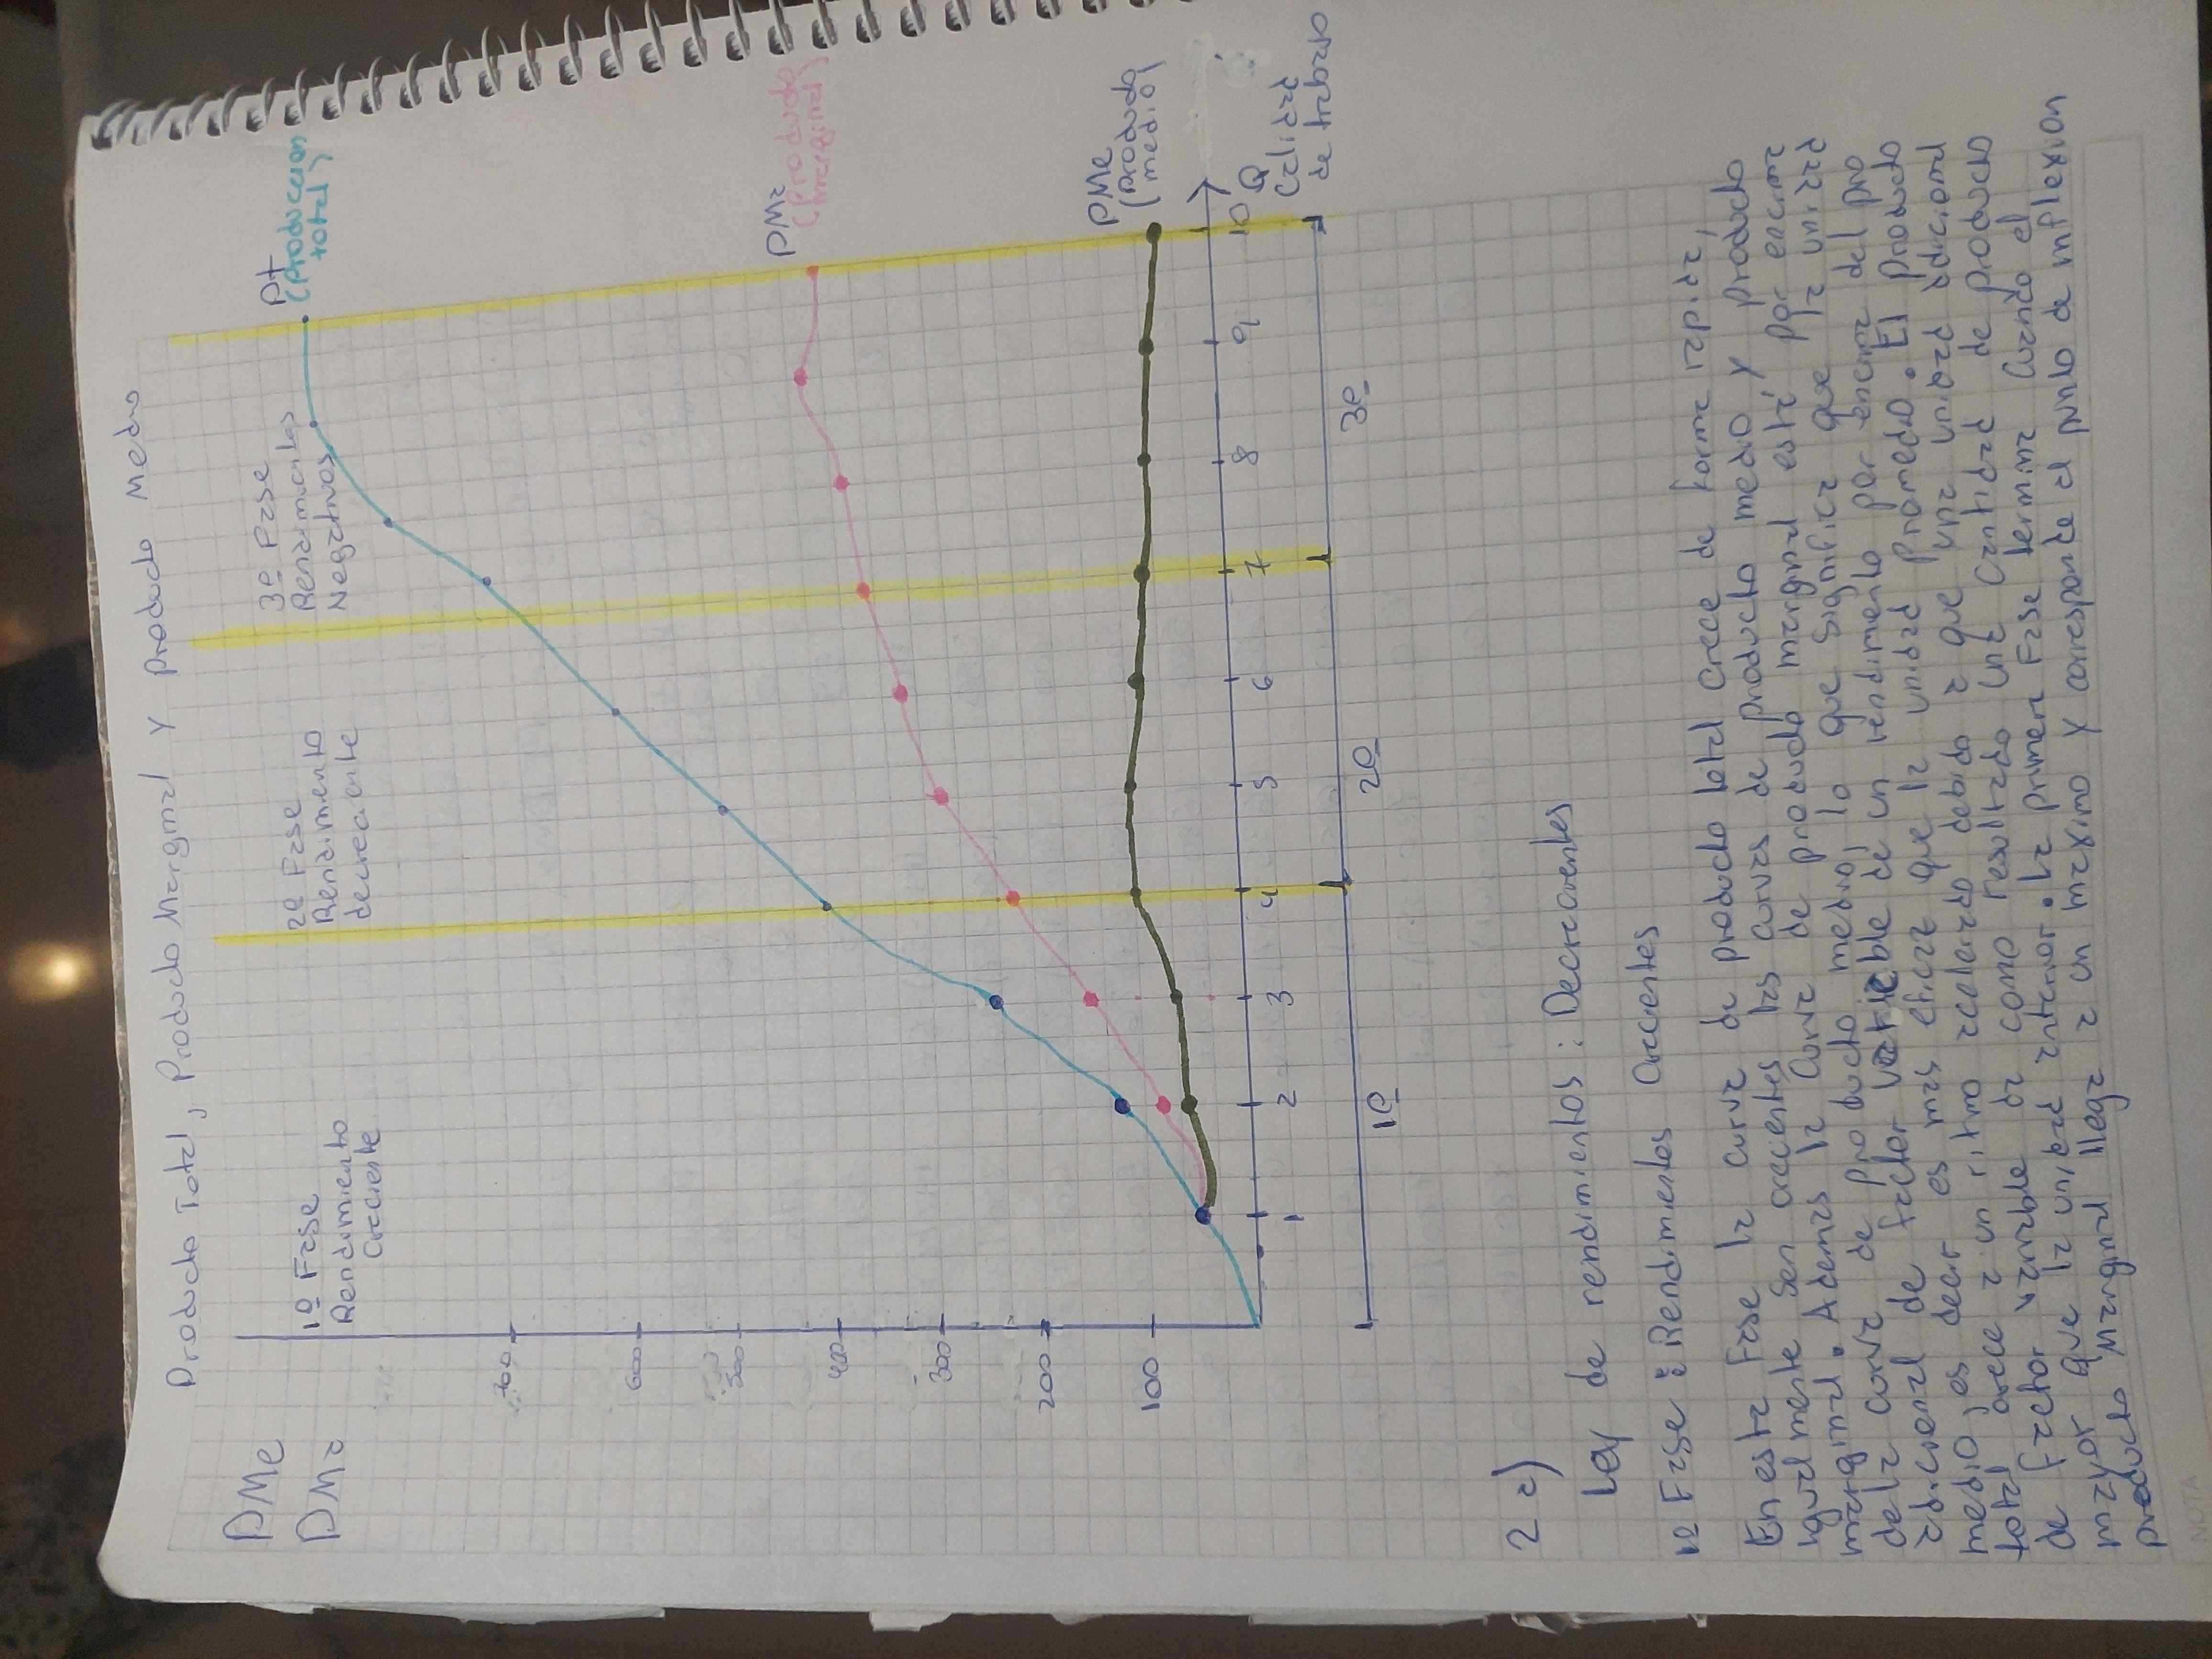 Producto Total, Producto Marginal y producto Medio
PMe
PMa
1º Fase
Rendimiento
creciente
2º Fase
Rendimiento
decreciente
3º Fase
Rendimientos
Negativos
Pt
(Produccion
total)
PMa
(Producto
marginal)
PMe
(Producto
medio)
700
600
500
400
300
200
100
1 2 3 4 5 6 7 8 9 10
Q
Calidad
de trabajo
1º 2º 3º
2 a)
Ley de rendimientos : Decrecientes
1º Fase : Rendimientos Crecientes
En esta Fase la curva de producto total crece de forma rapida,
igualmente son crecientes las curvas de producto medio y producto
marginal. Ademas la curva de producto marginal está por encima
de la curva de producto medio, lo que significa que la unidad
adicional de factor variable de un rendimiento por encima del pro
medio, es decir es mas eficaz que la unidad promedio. El producto
total crece a un ritmo acelerado debido a que una unidad adicional
de factor variable da como resultado una cantidad de producto
mayor que la unidad anterior. La primera Fase termina cuando el
producto Marginal llega a un maximo y corresponde al punto de inflexion
NOTA